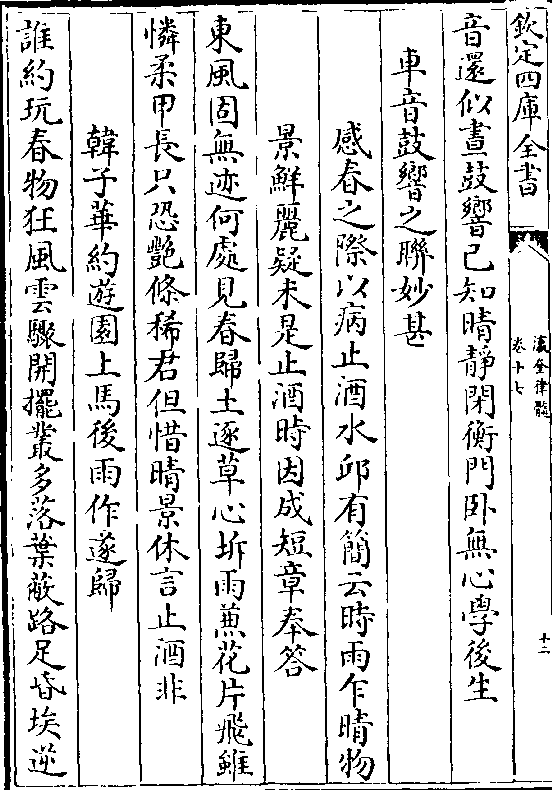 欽定四庫全書
瀛奎律髓
卷十七
十二
音還似晝鼓響已知晴靜閑衡門卧無心學後生
車音鼓響之聯妙甚
感春之際以病止酒水邱有簡云時雨乍晴物
景鮮麗疑未是止酒時因成短章奉答
東風固無迹何處見春歸土逐草心坼雨蒸花片飛雖
憐柔甲長只恐艷條稀君但惜晴景休言止酒非
韓子華約遊園上馬後雨作遂歸
誰約玩春物狂風雲驟開擺叢多落葉蔽路足昏埃逆